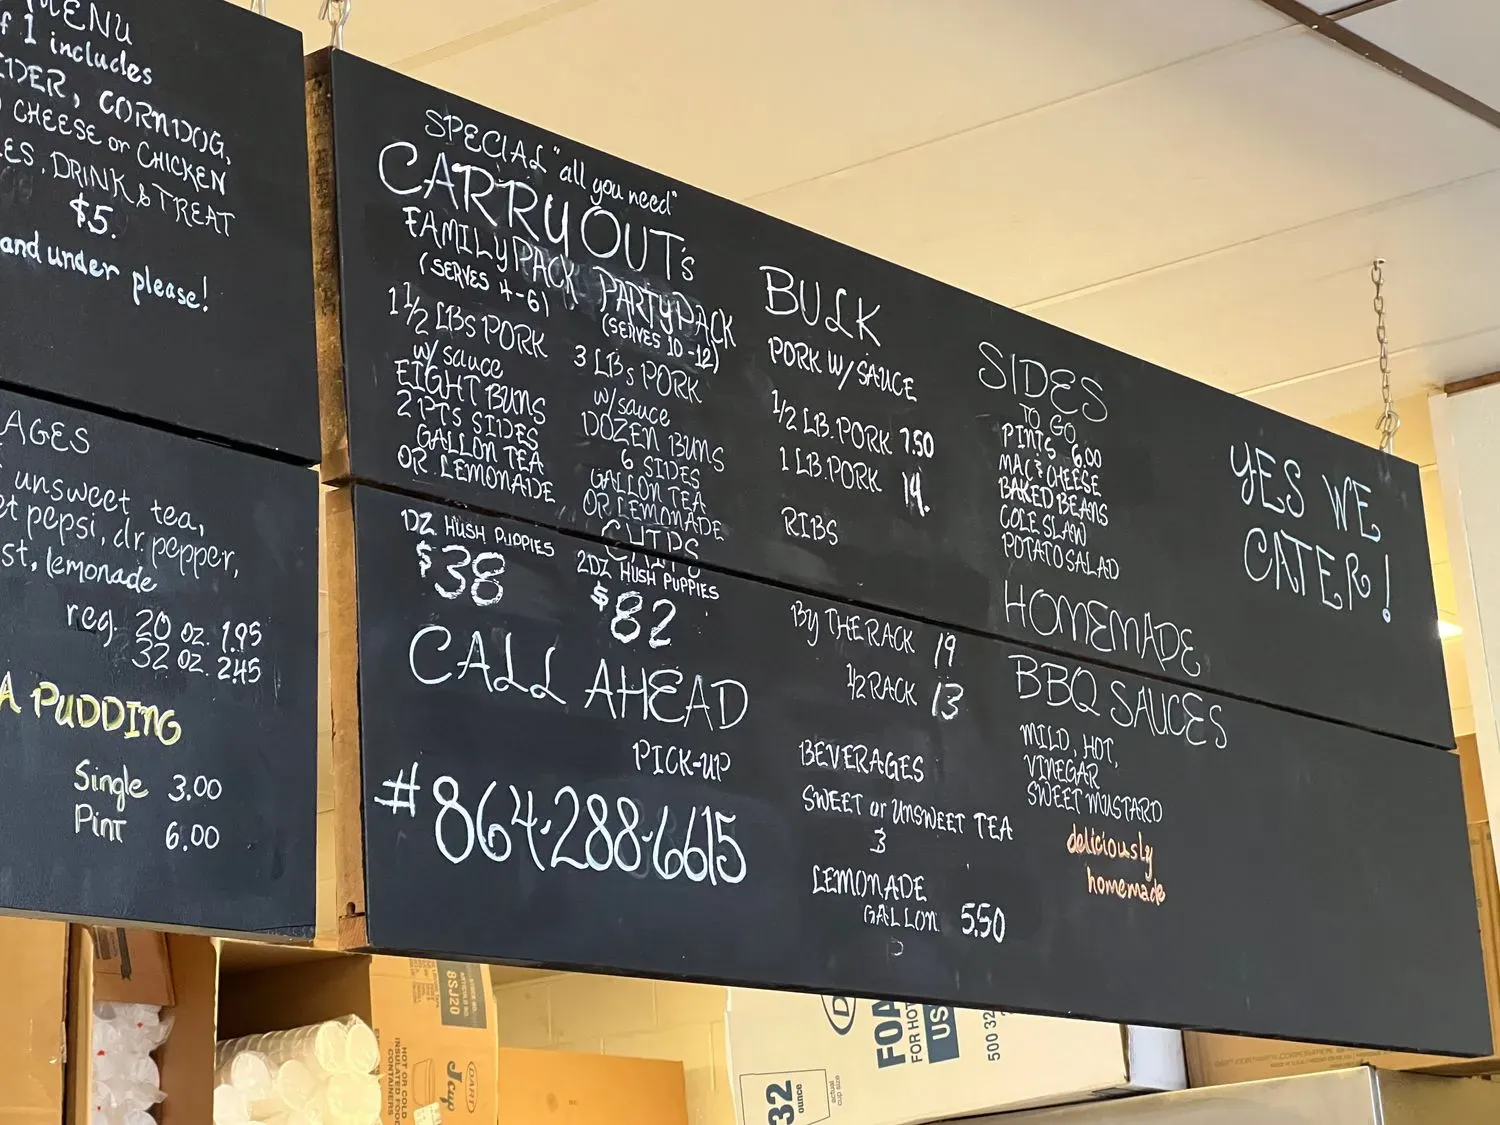 MENU
f 1 includes
IDER, CORNDOG,
CHEESE or CHICKEN
ES, DRINK & TREAT
$5.
and under please!
AGES
unsweet tea,
et pepsi, dr. pepper,
st, lemonade
reg. 20 oz. 1.95
32 oz. 2.45
A PUDDING
Single 3.00
Pint 6.00
SPECIAL "all you need"
CARRY OUT's
FAMILY PACK
(SERVES 4-6)
1 1/2 LBS PORK
w/ sauce
EIGHT BUNS
2 PTS SIDES
GALLON TEA
OR LEMONADE
1 DZ HUSH PUPPIES
$38
PARTY PACK
(SERVES 10-12)
3 LBs PORK
w/sauce
DOZEN BUNS
6 SIDES
GALLON TEA
OR LEMONADE
CHIPS
2DZ HUSH PUPPIES
$82
CALL AHEAD
PICK-UP
#864-288-6615
BULK
PORK W/ SAUCE
1/2 LB. PORK 7.50
1 LB. PORK 14.
RIBS
By THE RACK 19
1/2 RACK 13
BEVERAGES
SWEET or UNSWEET TEA
3
LEMONADE
GALLON 5.50
SIDES
TO GO
PINTS 6.00
MAC & CHEESE
BAKED BEANS
COLE SLAW
POTATO SALAD
HOMEMADE
BBQ SAUCES
MILD, HOT,
VINEGAR
SWEET MUSTARD
deliciously
homemade
YES WE
CATER!
8SJ20
HOT OR COLD
INSULATED FOOD
CONTAINERS
J cup
DART
32
ounce
actual
cup size
D
FOA
FOR HOT
US
500 32